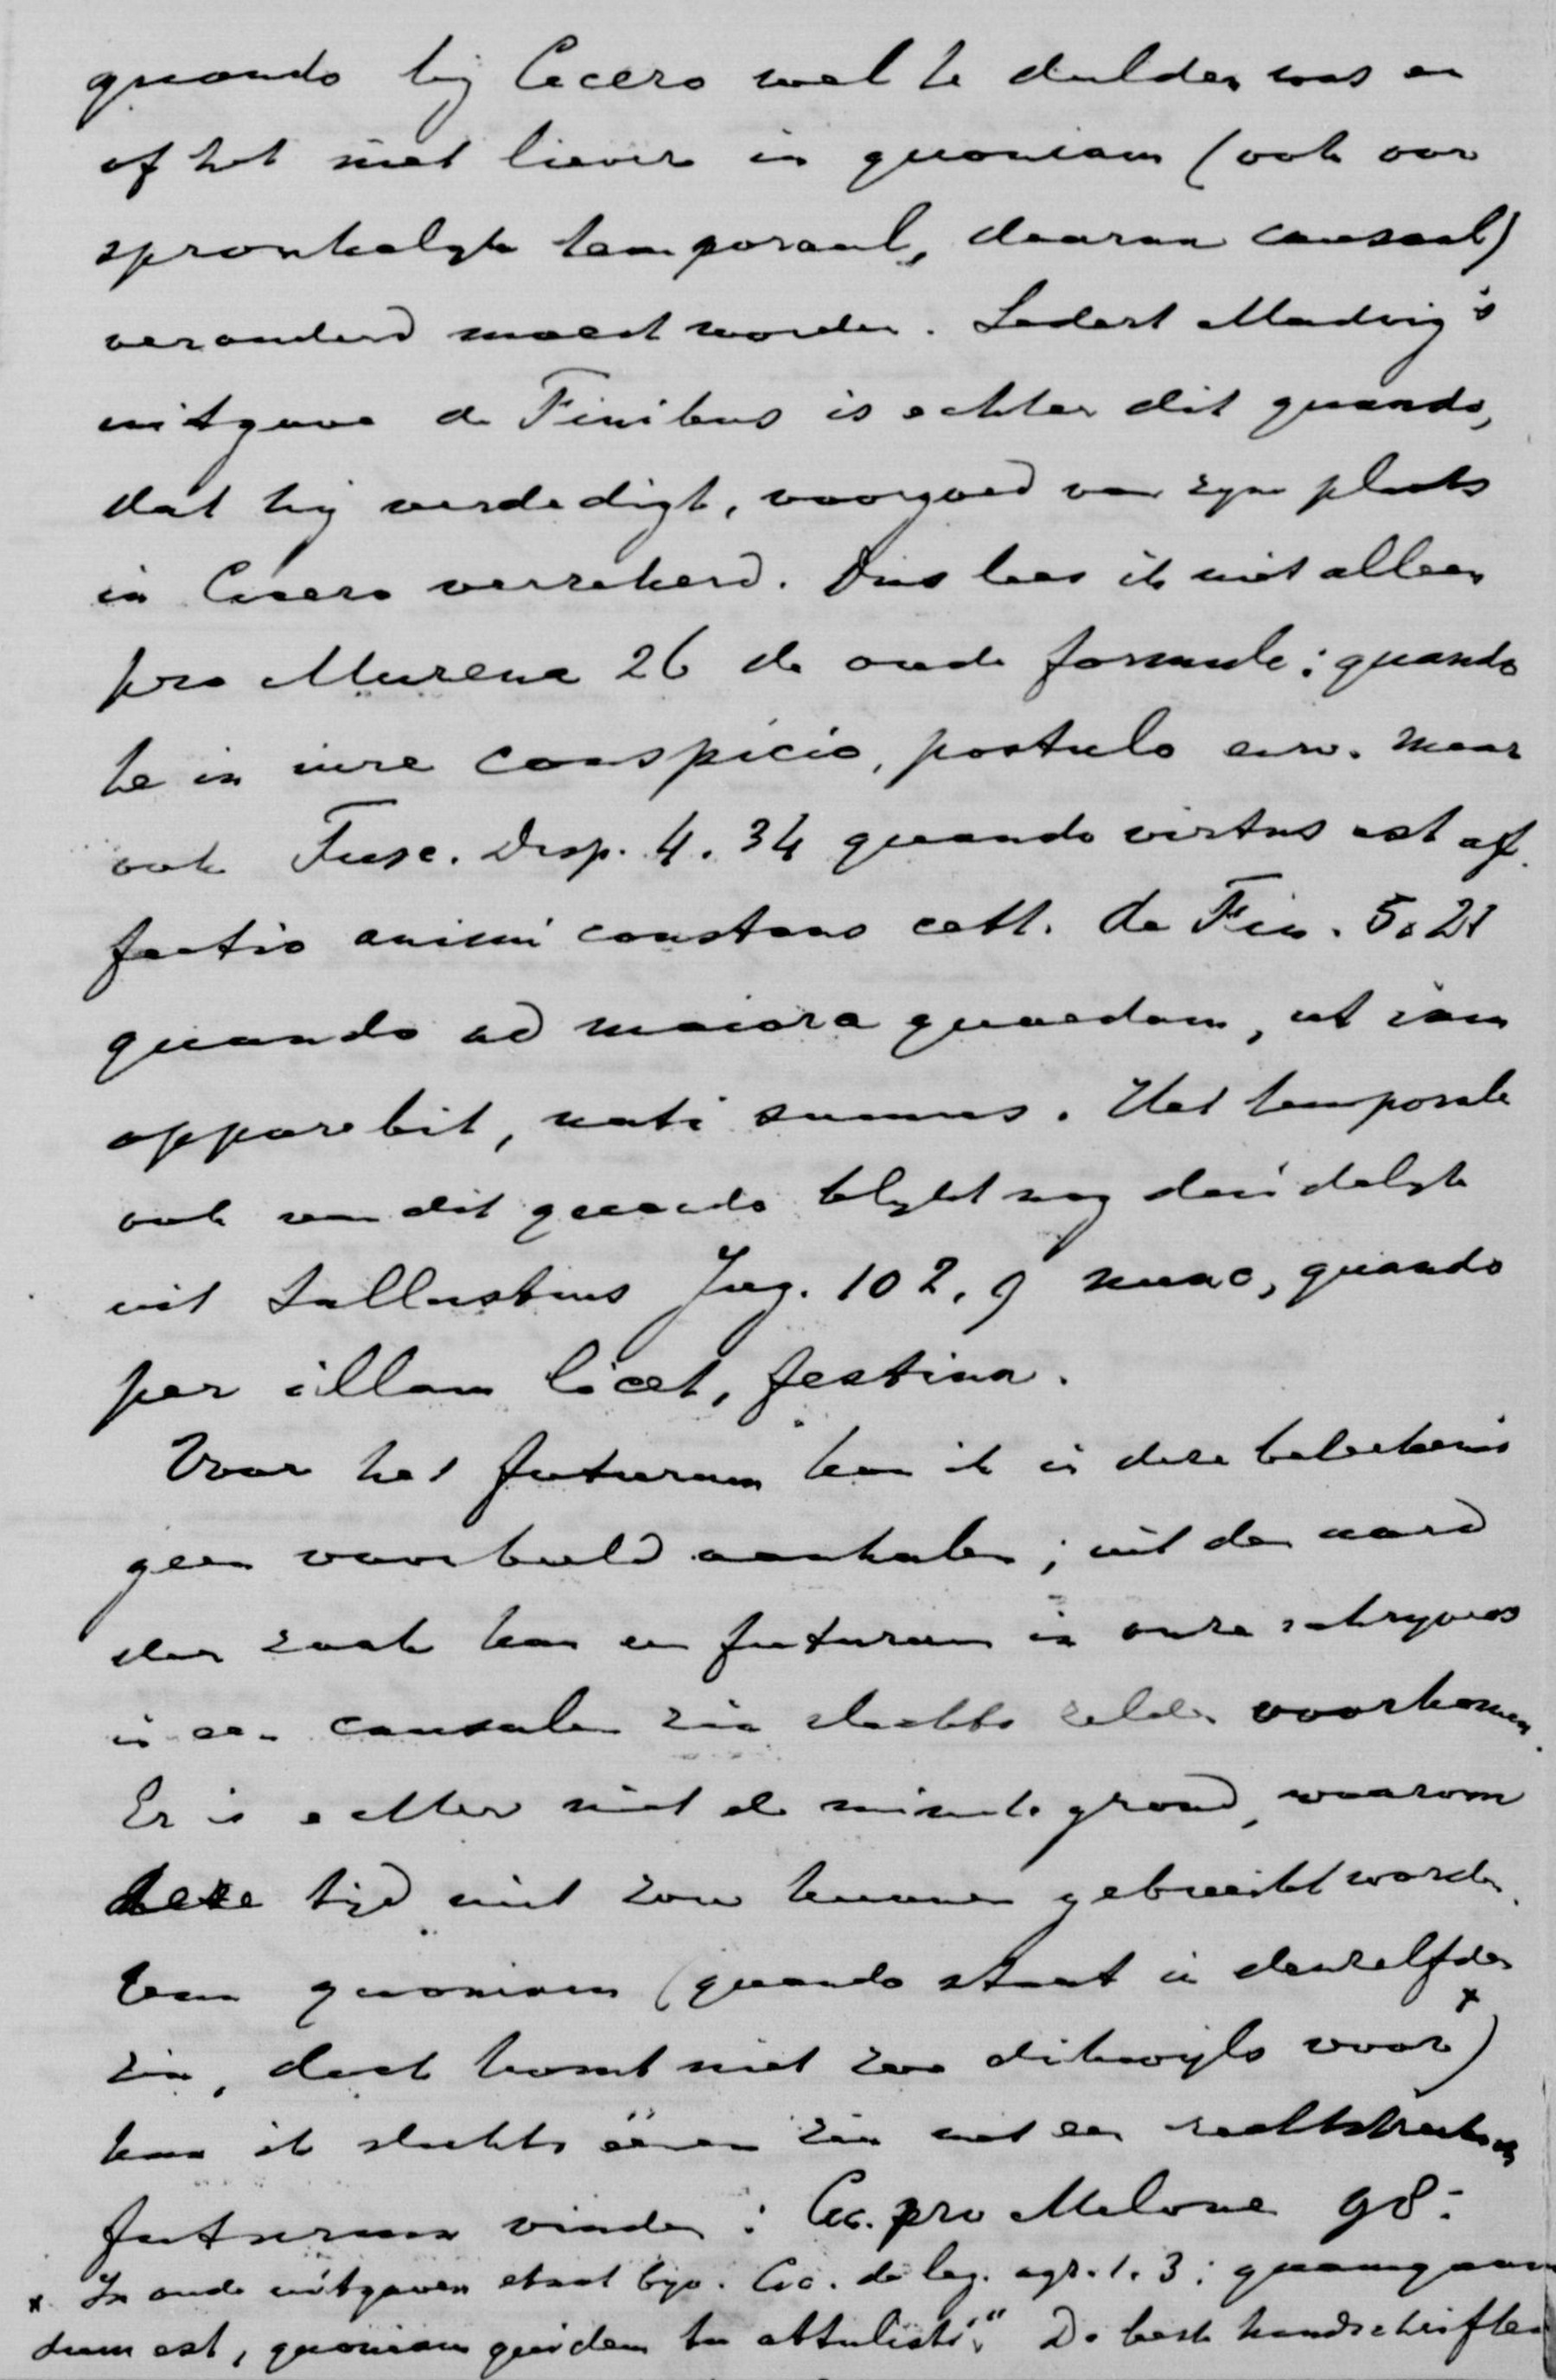 quando bij Cicero wel te dulden was en
of het niet liever in quoniam (ook oor
spronkelijk temporaal, daarna causaal)
veranderd moest worden. Sedert Madvig's
uitgave de Finibus is echter dit quando,
dat hij verdedigt, voorgoed van zijn plaats
in Cicero verzekerd. Dus lees ik niet alleen
pro Murena 26 de oude formule: quando
te in iure conspicio, postulo enz. maar
ook Tusc. Disp. 4. 34 quando virtus est af-
fectio animi constans cett. de Fin. 5. 21
quando ad maiora quaedam, ut iam
apparebit, nati sumus. Het temporale
ook van dit quando blijkt nog duidelijk
uit Sallustius Jug. 102, 9 nunc, quando
per illam licet, festina.
Voor het futurum kan ik in deze beteekenis
geen voorbeeld aanhalen; uit den aard
der zaak kan een futurum in onze schrijvers
in een causalen zin slechts zelden voorkomen.
Er is echter niet de minste grond, waarom
deze tijd niet zou kunnen gebruikt worden.
Van quoniam (quando staat in denzelfden
zin, doch komt niet zoo dikwijls voor x)
kan ik slechts éénen zin met een rechtstreeksch
futurum vinden: Cic. pro Milone 98:
x In oude uitgaven staat bijv. Cic. de leg. agr. 1. 3: quamquam
dum est, quoniam quidem tu attulisti." De beste handschriften